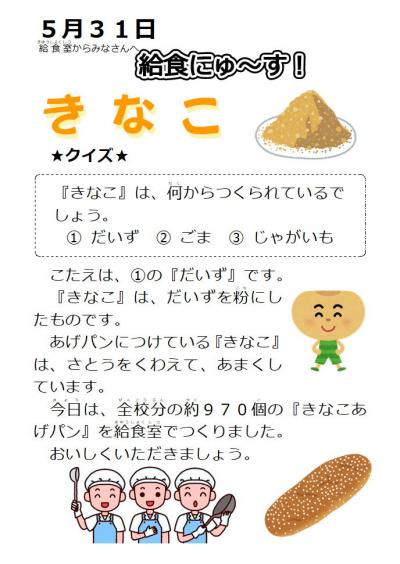 ５月３１日
給食室からみなさんへ
給食にゅ～す！
きなこ
★クイズ★
『きなこ』は、何からつくられているで
しょう。
① だいず ② ごま ③ じゃがいも
こたえは、①の『だいず』です。
『きなこ』は、だいずを粉にし
たものです。
あげパンにつけている『きなこ』
は、さとうをくわえて、あまくし
ています。
今日は、全校分の約９７０個の『きなこあ
げパン』を給食室でつくりました。
おいしくいただきましょう。